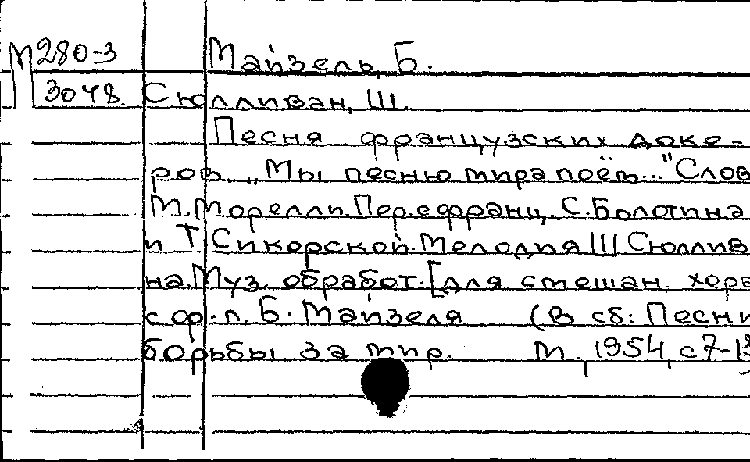 М280-3 Майзель, Б.
3048 Сюлливан, Ш.
Песня французских доке-
ров „Мы песню мира поём..." Слов
М. Морелли. Пер. с франц. С. Болотина
и Т. Сикорской. Мелодия Ш. Сюллив
на. Муз. обработ. [для смешан. хора
с ф.-п. Б. Майзеля (В сб: Песни
борьбы за мир. М., 1954, с 7-13